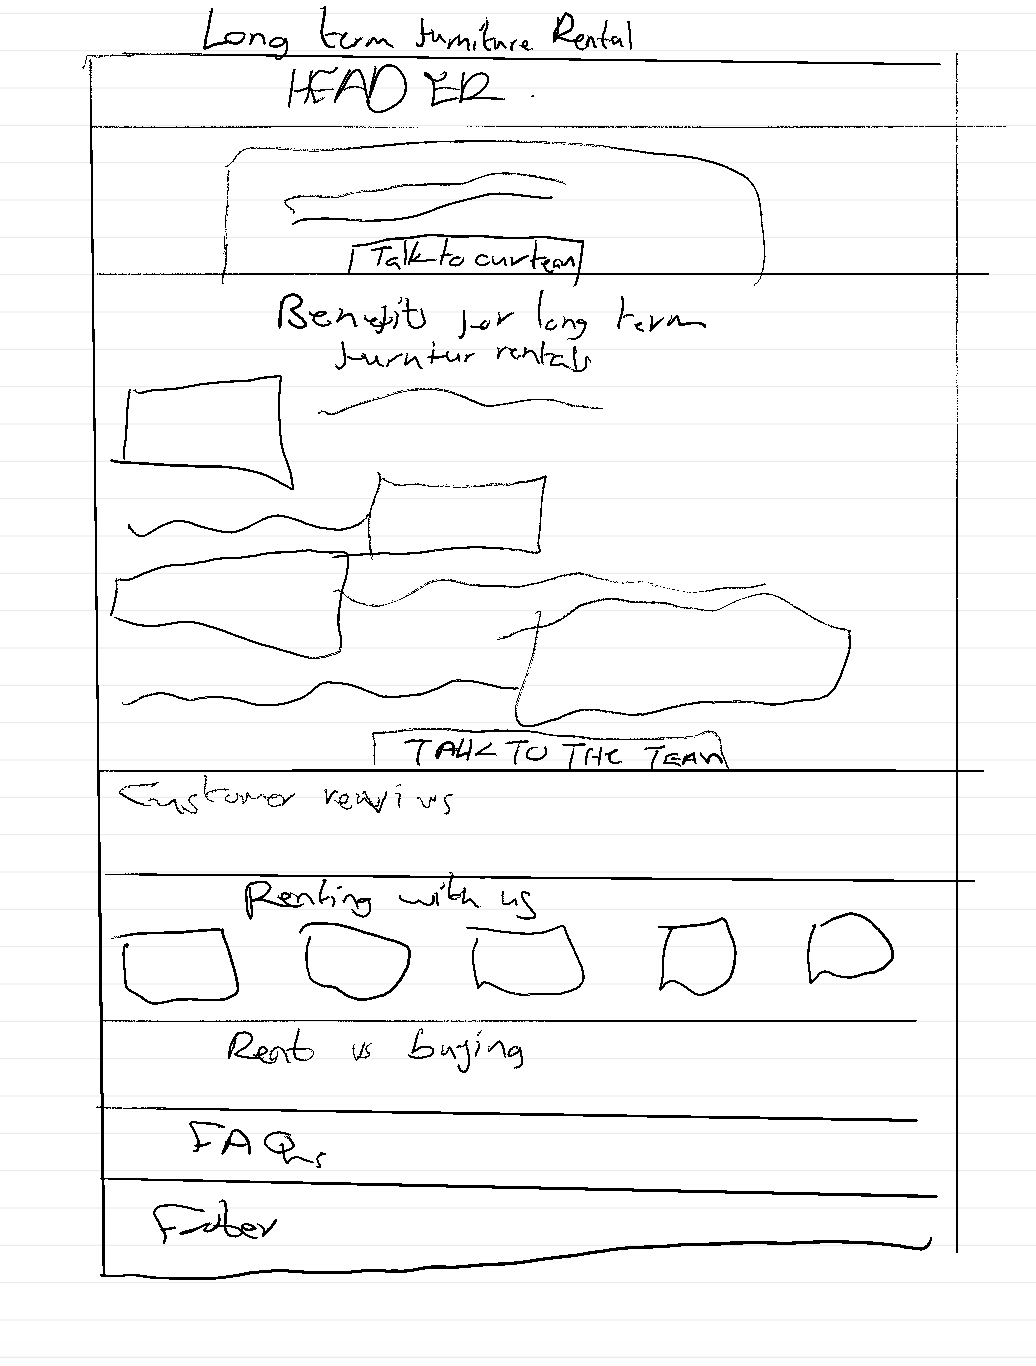 Long term furniture Rental
HEADER
Talk to our team
Benefits for long term
furntur rentals
TALK TO THE TEAM
Customer
Renting with us
Rent vs buying
FAQs
Footer